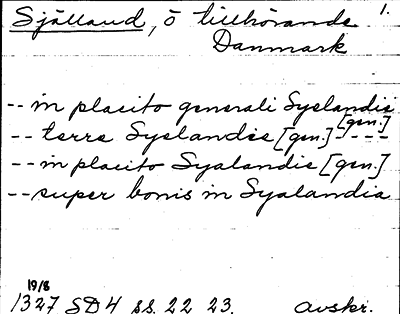 Själland, ö tillhörande 1.
Danmark
-- in placito generali Syelandie
[gen.]
-- terre Syelandie [gen.] - - - -
-- in placito Syalandie [gen.]
-- super bonis in Syalandia
19/8
1327 SD4 ss. 22 23. avskr.